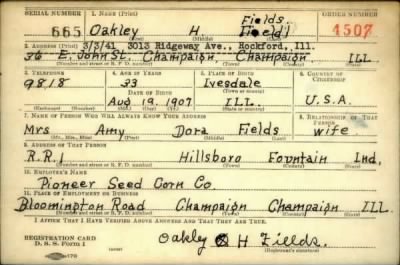 SERIAL NUMBER 1. NAME (Print) ORDER NUMBER
Fields.
665 Oakley H Fieldl 1507
(First) (Middle) (Last)
2. ADDRESS (Print) 3/3/41 3013 Ridgeway Ave., Rockford, Ill.
36 E. John St. Champaign Champaign ILL
(Number and street or R. F. D. number) (Town) (County) (State)
3. TELEPHONE 4. AGE IN YEARS 5. PLACE OF BIRTH 6. COUNTRY OF CITIZENSHIP
9818 33 Ivesdale
DATE OF BIRTH (Town or county)
Aug 19, 1907 ILL. U.S.A.
(Mo.) (Day) (Yr.) (State or country)
7. NAME OF PERSON WHO WILL ALWAYS KNOW YOUR ADDRESS 8. RELATIONSHIP OF THAT PERSON
Mrs Amy Dora Fields wife
(Mr., Mrs., Miss) (First) (Middle) (Last)
9. ADDRESS OF THAT PERSON
R.R.1 Hillsboro Fountain Ind.
(Number and street or R. F. D. number) (Town) (County) (State)
10. EMPLOYER'S NAME
Pioneer Seed Corn Co.
11. PLACE OF EMPLOYMENT OR BUSINESS
Bloomington Road Champaign Champaign ILL
(Number and street or R. F. D. number) (Town) (County) (State)
I AFFIRM THAT I HAVE VERIFIED ABOVE ANSWERS AND THAT THEY ARE TRUE.
REGISTRATION CARD
D. S. S. Form 1 Oakley H Fields.
(Registrant's signature)